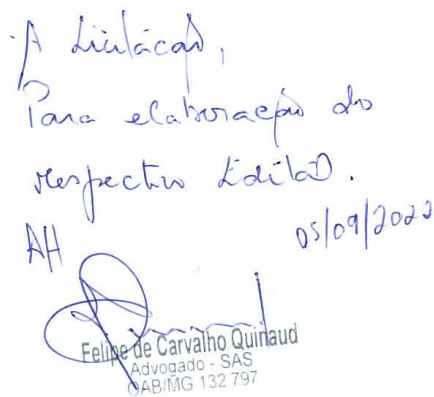 À Licitação,
Para elaboração do
respectivo Edital.
AH
05/09/2022
Felipe de Carvalho Quinaud
Advogado - SAS
OAB/MG 132 797